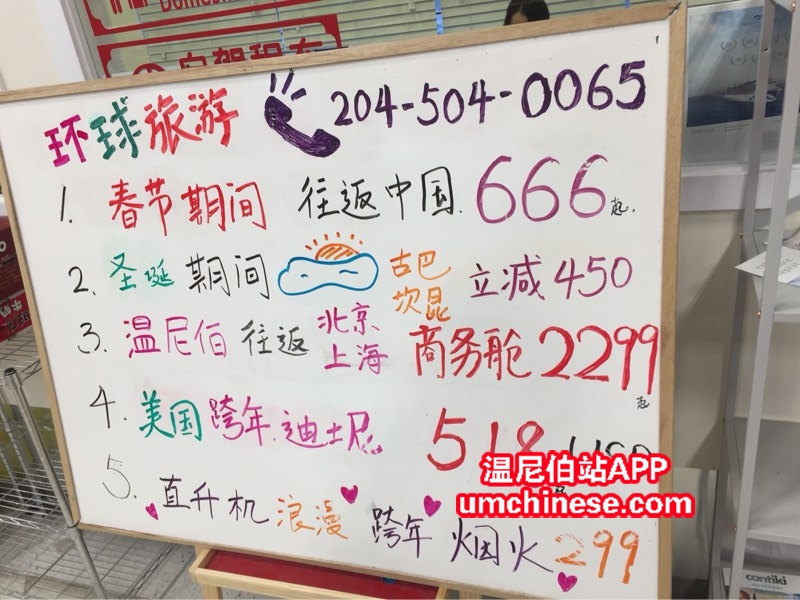 自驾租车
环球旅游 204-504-0065
1. 春节期间 往返中国 666起.
2. 圣诞期间 古巴 坎昆 立减450
3. 温尼伯 往返 北京 上海 商务舱2299起
4. 美国跨年 迪士尼 518
5. 直升机 浪漫 跨年 烟火 299
温尼伯站APP
umchinese.com
contiki